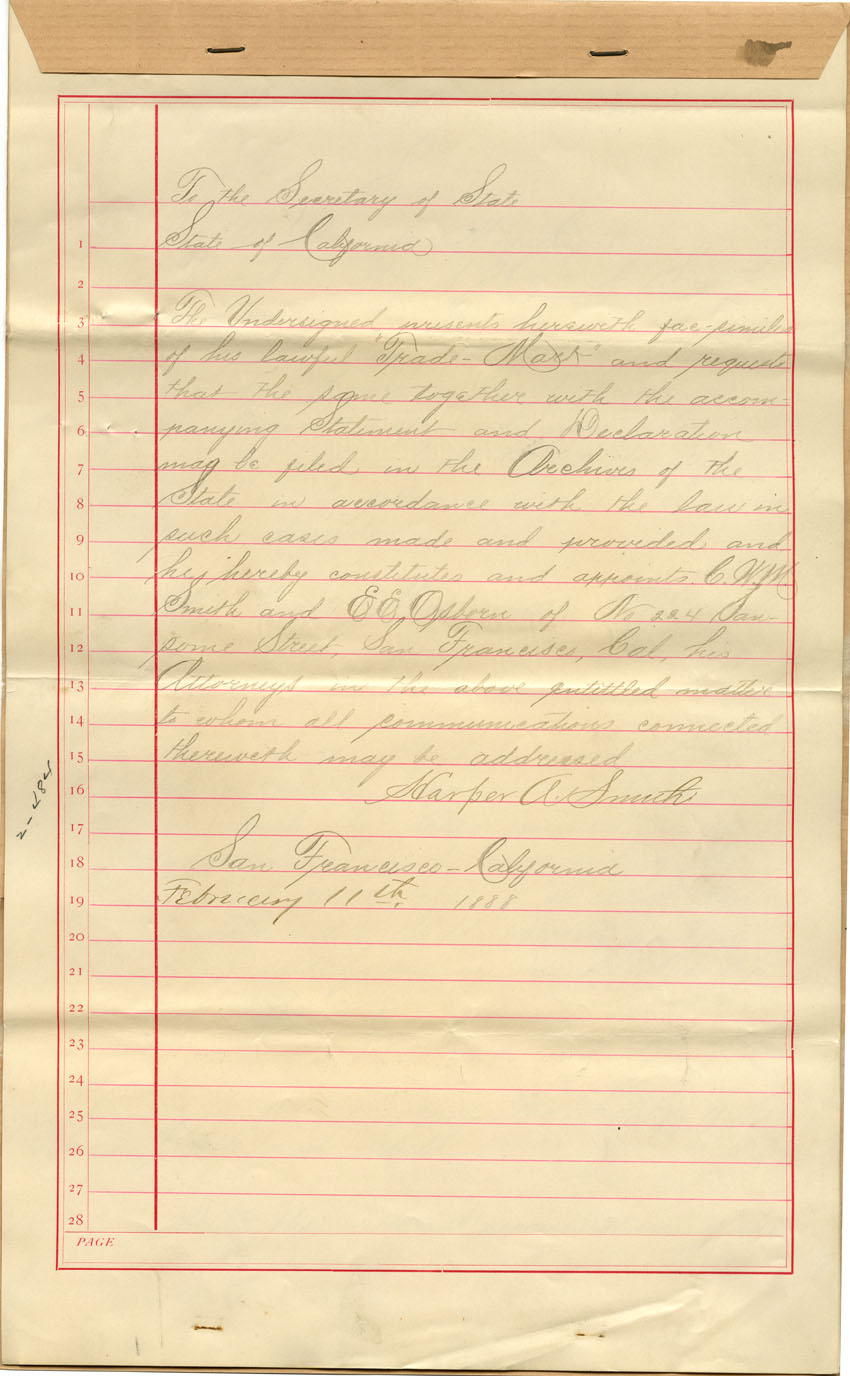 To the Secretary of State
State of California
1
2
3 The Undersigned presents herewith fac-similes
4 of his lawful "Trade-Mark" and requests
5 that the same together with the accom-
6 panying Statement and Declaration
7 may be filed in the Archives of the
8 State in accordance with the law in
9 such cases made and provided and
10 he hereby constitutes and appoints C. W. M.
11 Smith and E E Osborn of No 224 San-
12 some Street, San Francisco, Cal, his
13 Attorneys in the above entittled matter
14 to whom all communications connected
15 therewith may be addressed
16 Harper A. Smith
17
18 San Francisco - California
19 February 11th. 1888
20
21
22
23
24
25
26
27
28
PAGE
2-484